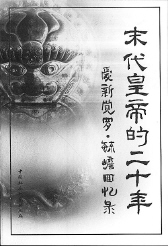 末代皇帝的二十年
爱新觉罗·毓嶦回忆录